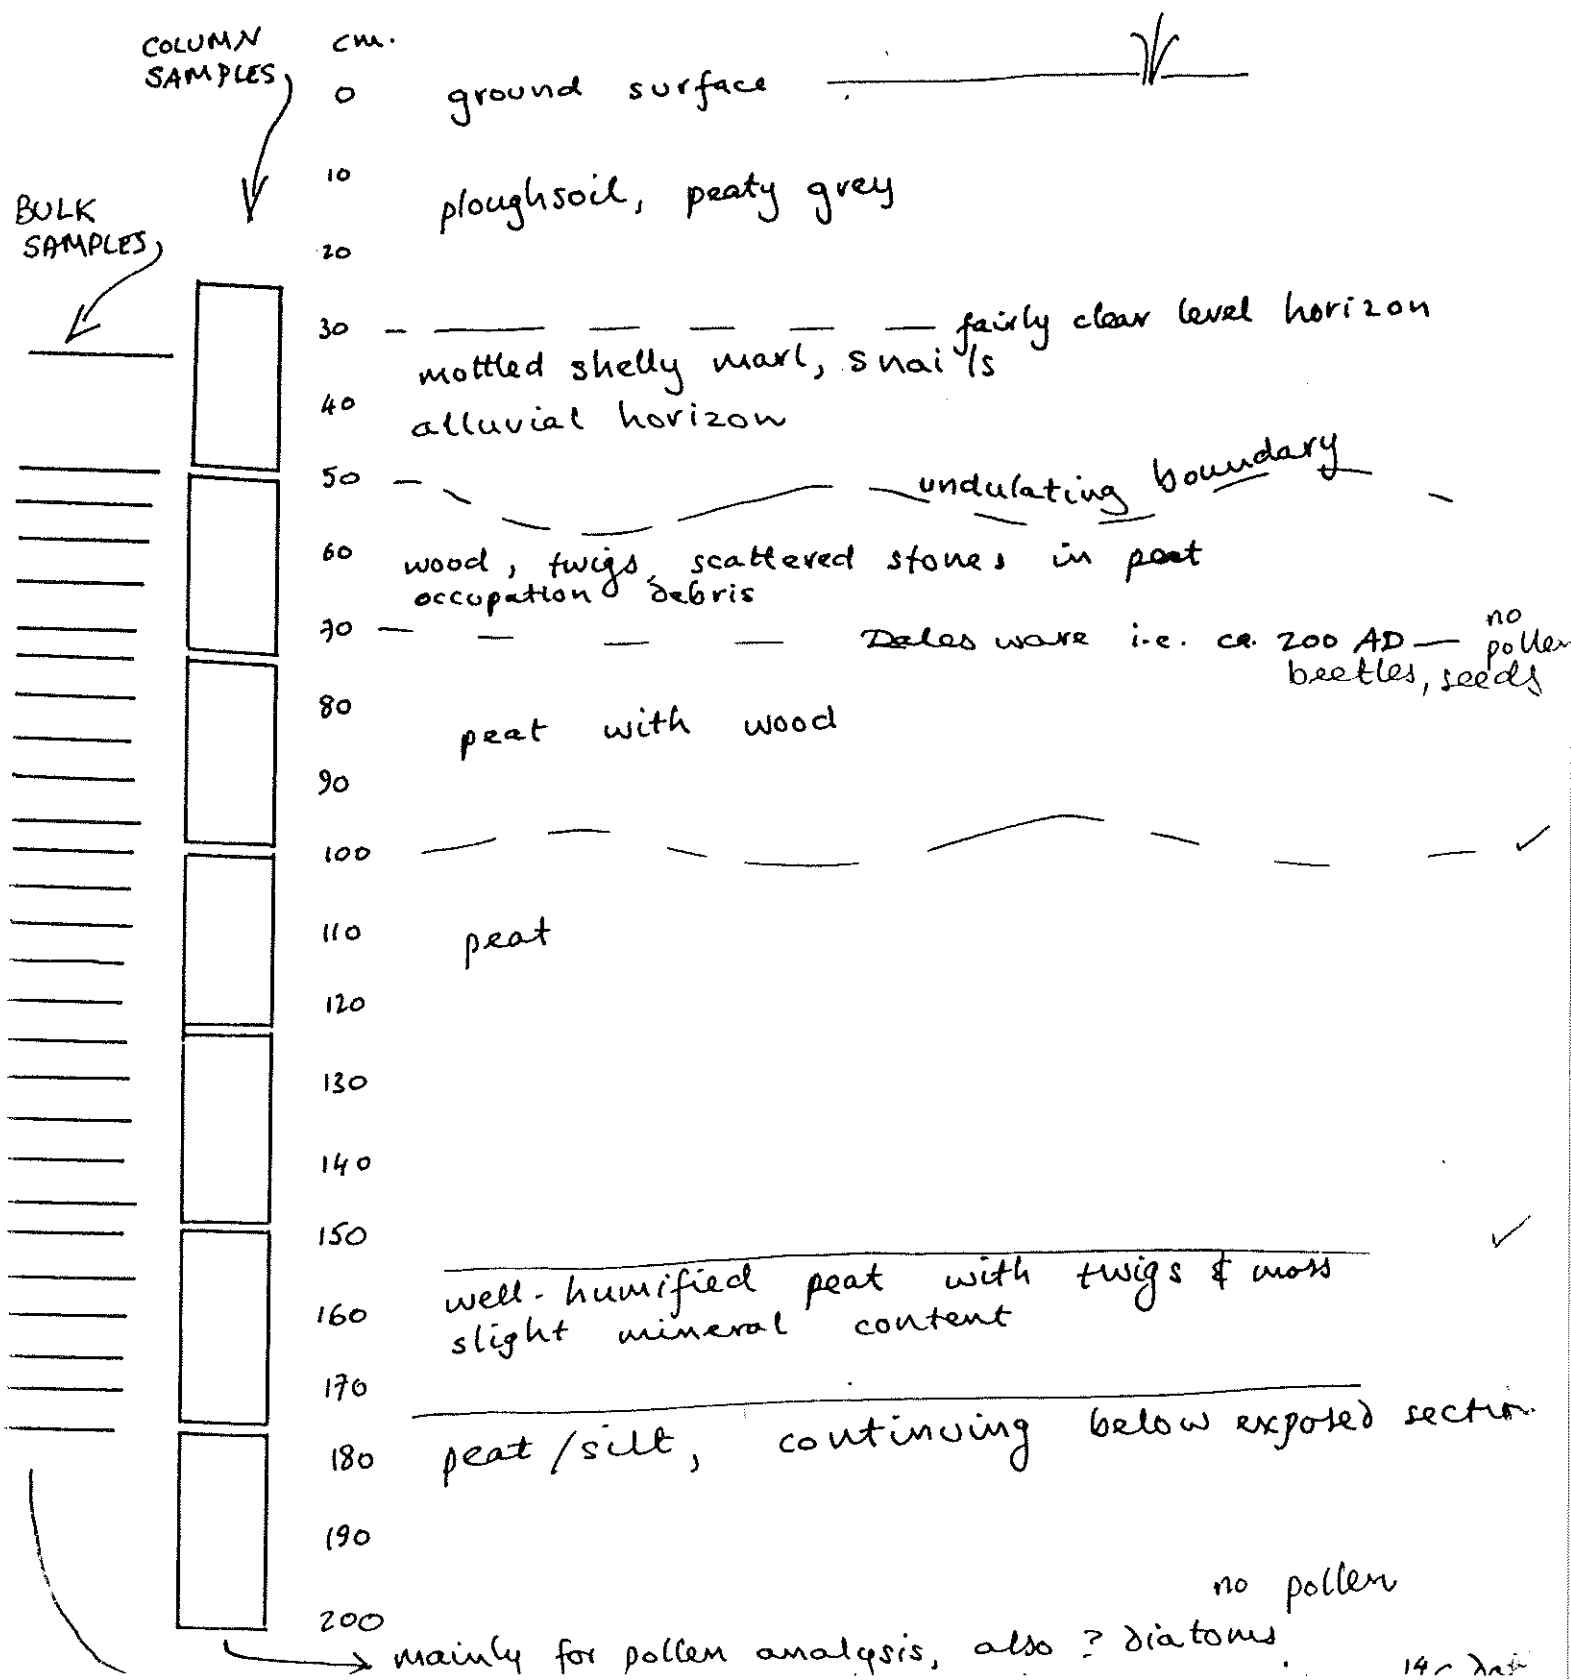 COLUMN SAMPLES
cm.
0 ground surface
10
ploughsoil, peaty grey
BULK SAMPLES
20
30 fairly clear level horizon
mottled shelly marl, snails
40
alluvial horizon
50 undulating boundary
60 wood, twigs, scattered stones in peat
occupation debris
70 Dales ware i.e. ca. 200 AD — no pollen
beetles, seeds
80
peat with wood
90
100 ✓
110 peat
120
130
140
150 ✓
well-humified peat with twigs & moss
160
slight mineral content
170
180 peat/silt, continuing below exposed section
190
no pollen
200
mainly for pollen analysis, also ? diatoms
14